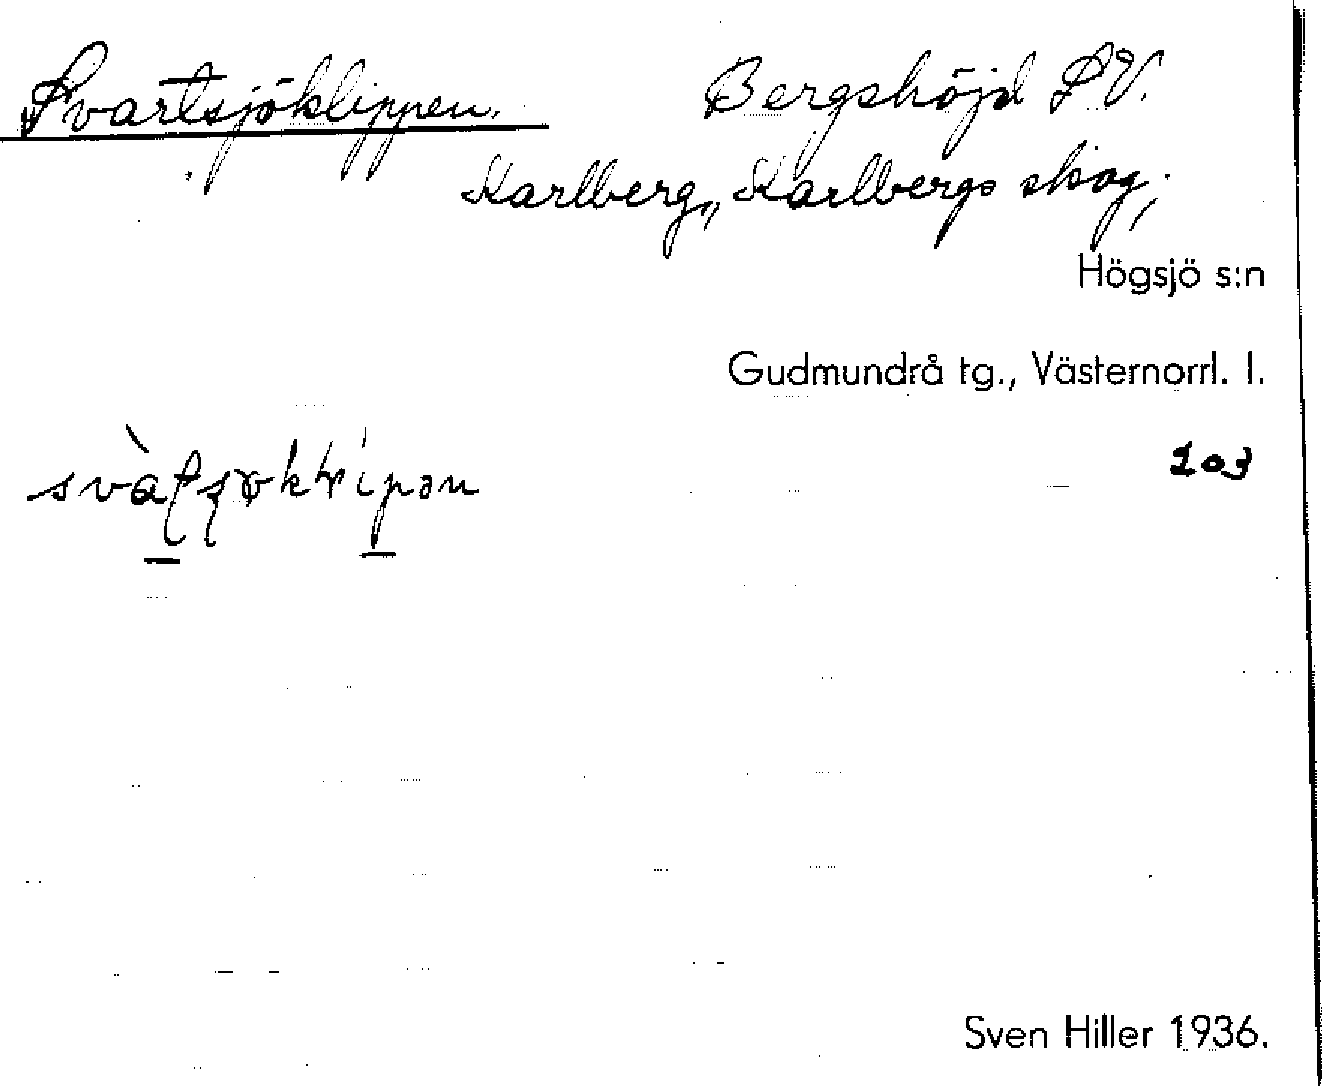 Svartsjöklippen. Bergshöjd SV.
Karlberg, Karlbergs skog,
Högsjö s:n
Gudmundrå tg., Västernorrl. l.
203
Sven Hiller 1936.